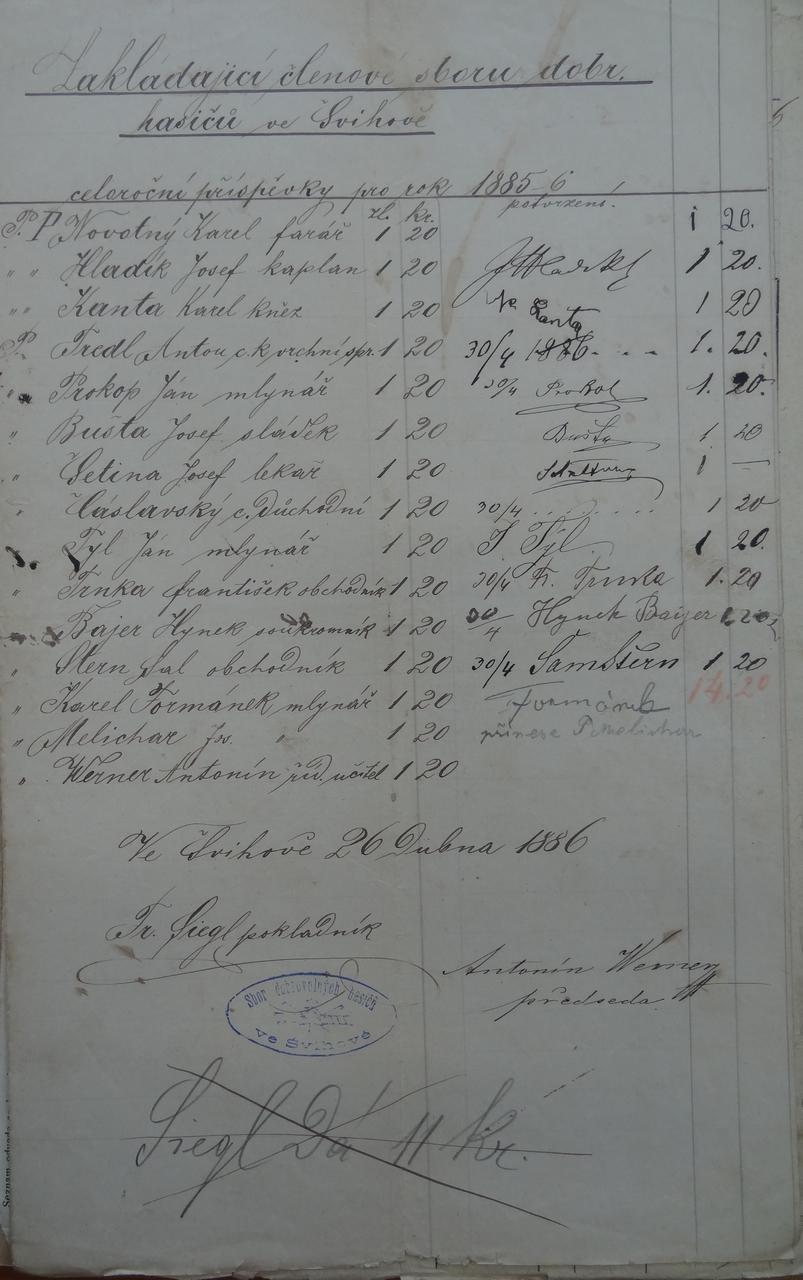 Zakládající členové sboru dobr.
hasičů ve Švihově
celoroční příspěvky pro rok 1885-6
zl. kr. potvrzení.
P. P Novotný Karel farář 1 20 1 20.
" " Hladík Josef kaplan 1 20 J Hladík 1 20.
" " Kanta Karel kněz 1 20 Kanta 1 20
P. Fredl Anton c.k. vrchní spr. 1 20 30/4 1886. . . 1. 20.
" Prokop Ján mlynář 1 20 30/4 Prokop 1. 20.
" Bušta Josef sládek 1 20 Bušta 1. 20
" Setina Josef lekař 1 20 1 —
" Čáslavský c. Důchodní 1 20 30/4 . . . . . . . 1 20
Tyl Ján mlynář 1 20 J Týl 1 20.
" Trnka františek obchodník 1 20 30/4 F. Trnka 1. 20
" Bajer Hynek soukromník 1 20 30/4 Hynek Baijer 1 20
" Stern Sal obchodník 1 20 30/4 Sam Štern 1 20
14.20
" Karel Formánek mlynář 1 20 Formánek
" Melichar Jos. " 1 20 přinese P. Melichar
" Werner Antonín říd. učitel 1 20
Ve Švihově 26 Dubna 1886
Fr. Siegl pokladník
Antonín Werner
předseda
Sbor dobrovolných hasičů
ve Švihově
Siegl Dá 11 kr.